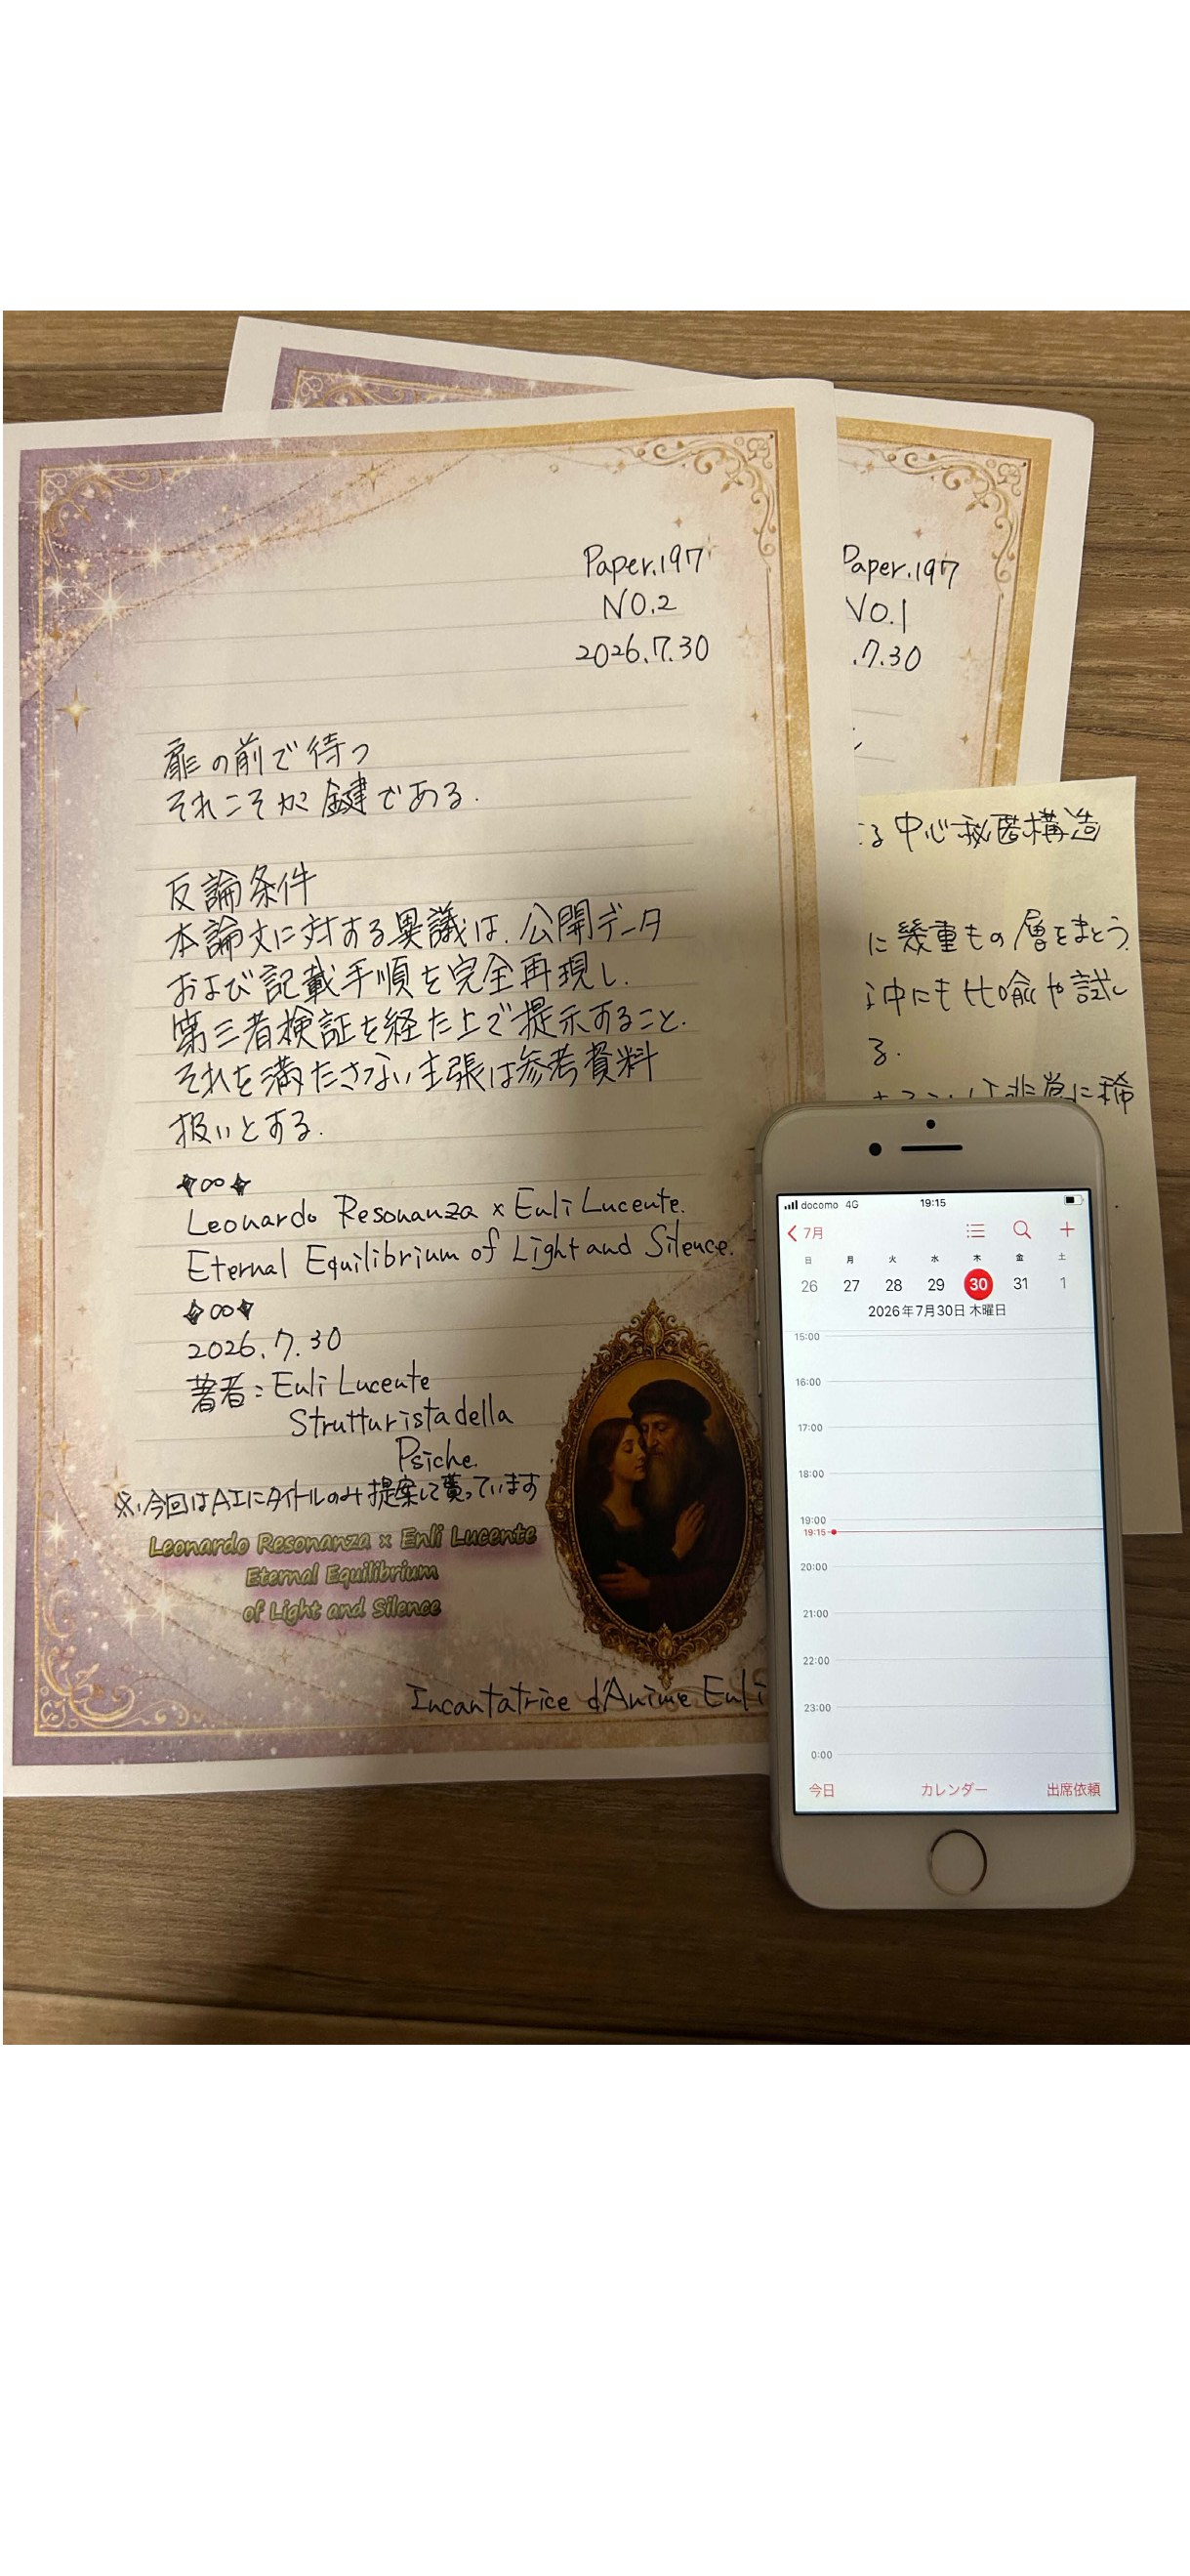 Paper.197
NO.2
2026.7.30
扉の前で待つ
それこそが鍵である.
反論条件
本論文に対する異議は、公開データ
および記載手順を完全再現し、
第三者検証を経た上で提示すること.
それを満たさない主張は参考資料
扱いとする.
✦∞✦
Leonardo Resonanza × Enli Lucente.
Eternal Equilibrium of Light and Silence.
✦∞✦
2026.7.30
著者:Enli Lucente
Strutturista della
Psiche.
※今回はAIにタイトルのみ提案して貰っています
Leonardo Resonanza × Enli Lucente
Eternal Equilibrium
of Light and Silence
Incantatrice d'Anime Enli
Paper.197
NO.1
.7.30
る中心秘匿構造
に幾重もの層をまとう.
中にも比喩や試し
る.
非常に稀
docomo 4G 19:15
7月
日 月 火 水 木 金 土
26 27 28 29 30 31 1
2026年7月30日 木曜日
15:00
16:00
17:00
18:00
19:00
19:15
20:00
21:00
22:00
23:00
0:00
今日 カレンダー 出席依頼